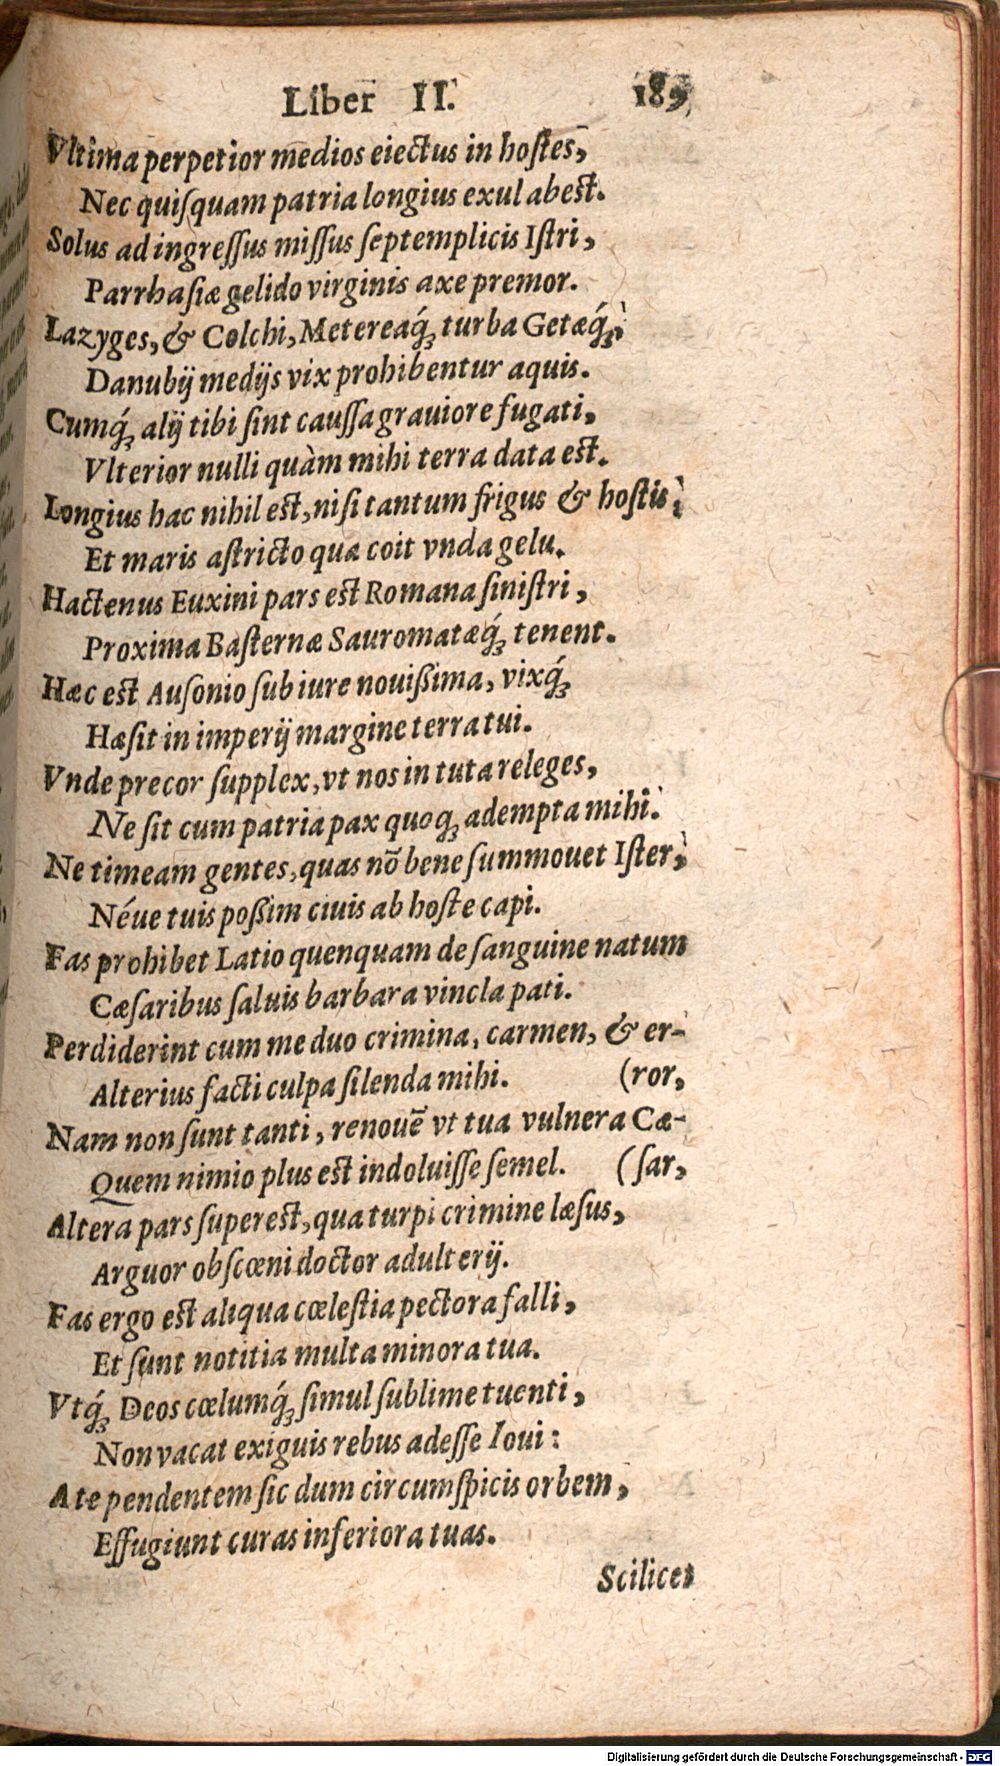 Liber II. 189
Vltima perpetior medios eiectus in hoſtes,
Nec quiſquam patria longius exul abest.
Solus ad ingreſſus miſſus ſeptemplicis Iſtri,
Parrhaſiæ gelido virginis axe premor.
Iazyges, & Colchi, Metereaq́; turba Getæq́;,
Danubij medijs vix prohibentur aquis.
Cumq́; alij tibi ſint cauſſa grauiore fugati,
Vlterior nulli quàm mihi terra data est.
Longius hac nihil est, niſi tantum frigus & hoſtis,
Et maris aſtricto quæ coit vnda gelu.
Hactenus Euxini pars est Romana ſiniſtri,
Proxima Baſternæ Sauromatæq́; tenent.
Hæc est Auſonio ſub iure nouiſsima, vixq́;
Hæſit in imperij margine terra tui.
Vnde precor ſupplex, vt nos in tuta releges,
Ne ſit cum patria pax quoq; adempta mihi.
Ne timeam gentes, quas nõ bene ſummouet Iſter,
Néue tuis poſsim ciuis ab hoſte capi.
Fas prohibet Latio quenquam de ſanguine natum
Cæſaribus ſaluis barbara vincla pati.
Perdiderint cum me duo crimina, carmen, & er-
Alterius facti culpa ſilenda mihi. (ror,
Nam non ſunt tanti, renouẽ vt tua vulnera Cæ-
Quem nimio plus est indoluiſſe ſemel. (ſar,
Altera pars ſuperest, qua turpi crimine læſus,
Arguor obſcœni doctor adulterij.
Fas ergo est aliqua cœleſtia pectora falli,
Et ſunt notitia multa minora tua.
Vtq́; Deos cœlumq́; ſimul ſublime tuenti,
Non vacat exiguis rebus adeſſe Ioui:
A te pendentem ſic dum circumſpicis orbem,
Effugiunt curas inferiora tuas.
Scilicet
Digitalisierung gefördert durch die Deutsche Forschungsgemeinschaft - DFG